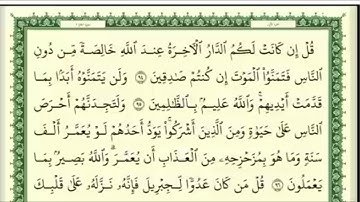 قُلْ إِن كَانَتْ لَكُمُ الدَّارُ الْآخِرَةُ عِندَ اللَّهِ خَالِصَةً مِّن دُونِ
النَّاسِ فَتَمَنَّوُا الْمَوْتَ إِن كُنتُمْ صَدِقِينَ ٩٤ وَلَن يَتَمَنَّوْهُ أَبَدًا بِمَا
قَدَّمَتْ أَيْدِيهِمْ وَاللَّهُ عَلِيمٌ بِالظَّالِمِينَ ٩٥ وَلَتَجِدَنَّهُمْ أَحْرَصَ
النَّاسِ عَلَى حَيَوٰةٍ وَمِنَ الَّذِينَ أَشْرَكُوا يَوَدُّ أَحَدُهُمْ لَوْ يُعَمَّرُ أَلْفَ
سَنَةٍ وَمَا هُوَ بِمُزَحْزِحِهِ مِنَ الْعَذَابِ أَن يُعَمَّرَ وَاللَّهُ بَصِيرٌ بِمَا
يَعْمَلُونَ ٩٦ قُلْ مَن كَانَ عَدُوًّا لِّجِبْرِيلَ فَإِنَّهُ نَزَّلَهُ عَلَى قَلْبِكَ